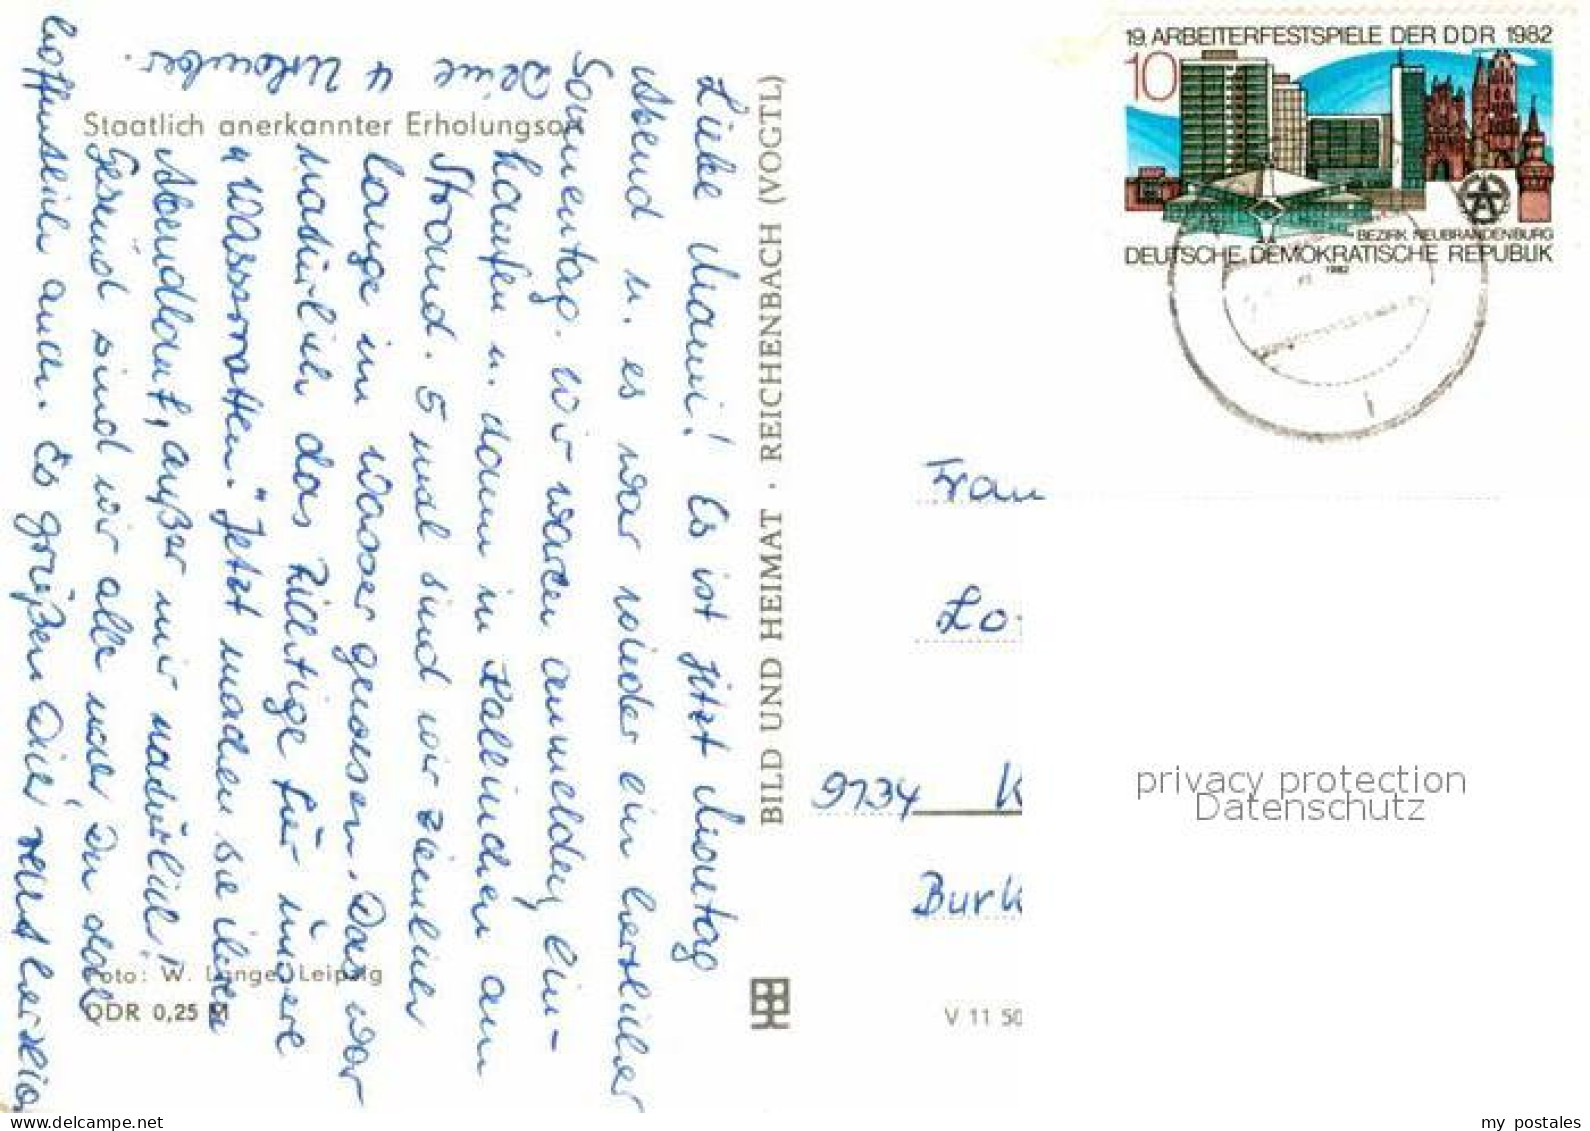 Liebe Mami! Es ist jetzt Montag
Abend u. es war wieder ein herrlicher
Sonnentag. Wir waren anmelden, ein-
kaufen u. dann in Kallinchen am
Strand. 5 mal sind wir ziemlich
lange im Wasser gewesen. Das war
natürlich das Richtige für unsere
"Wasserratten." Jetzt machen sie ihren
Abendlauf, außer mir natürlich,
Gesund sind wir alle noch, Du
hoffentlich auch. Es grüßen Dich recht herzlich
Deine
4 Urlauber.
Staatlich anerkannter Erholungsort
Foto: W. Lange, Leipzig
DDR 0,25 M
BILD UND HEIMAT · REICHENBACH (VOGTL)
V 11 50
19. ARBEITERFESTSPIELE DER DDR 1982
10
BEZIRK NEUBRANDENBURG
DEUTSCHE DEMOKRATISCHE REPUBLIK
1982
Frau
Lo
9734 K
Burk
privacy protection
Datenschutz
my_postales